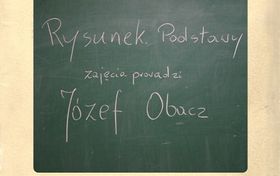 Rysunek Podstawy
zajęcia prowadzi
Józef Obacz